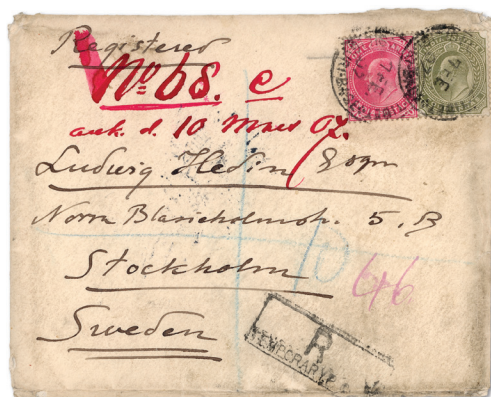 Registered
No 68. c
ank. d. 10 Mars 07.
Ludwig Hedin Esqr
Norra Blasieholmsh. 5. B
Stockholm
Sweden
646
R
TEMPORARY